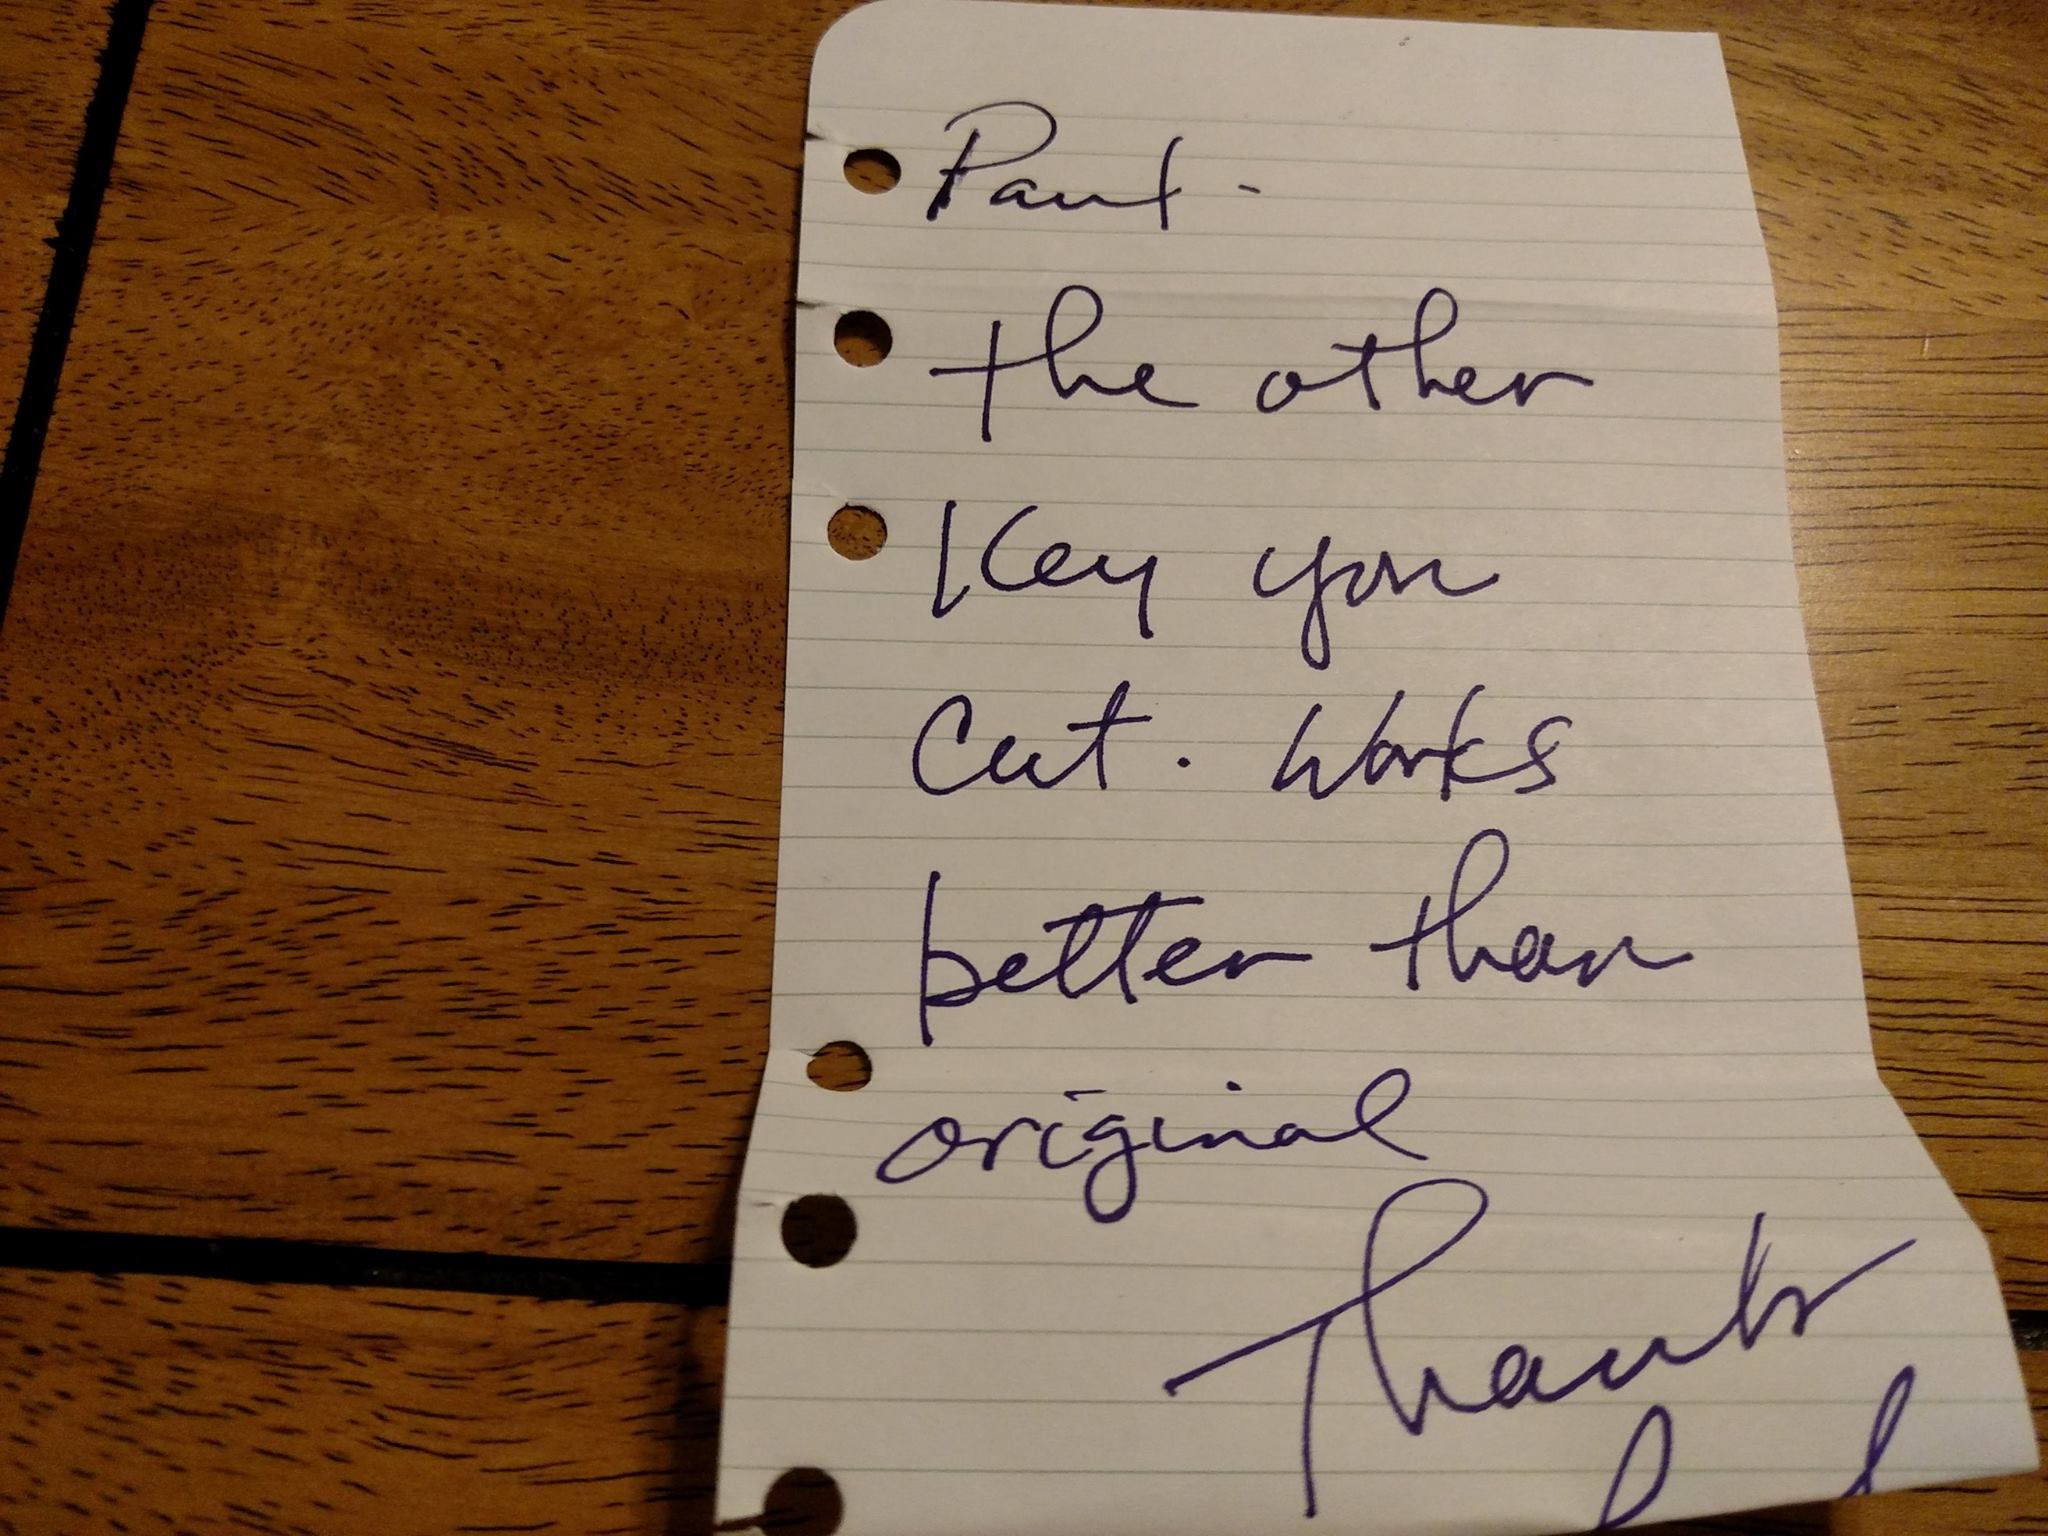 Paul -
the other
Key you
Cut. Works
better than
original
Thanks